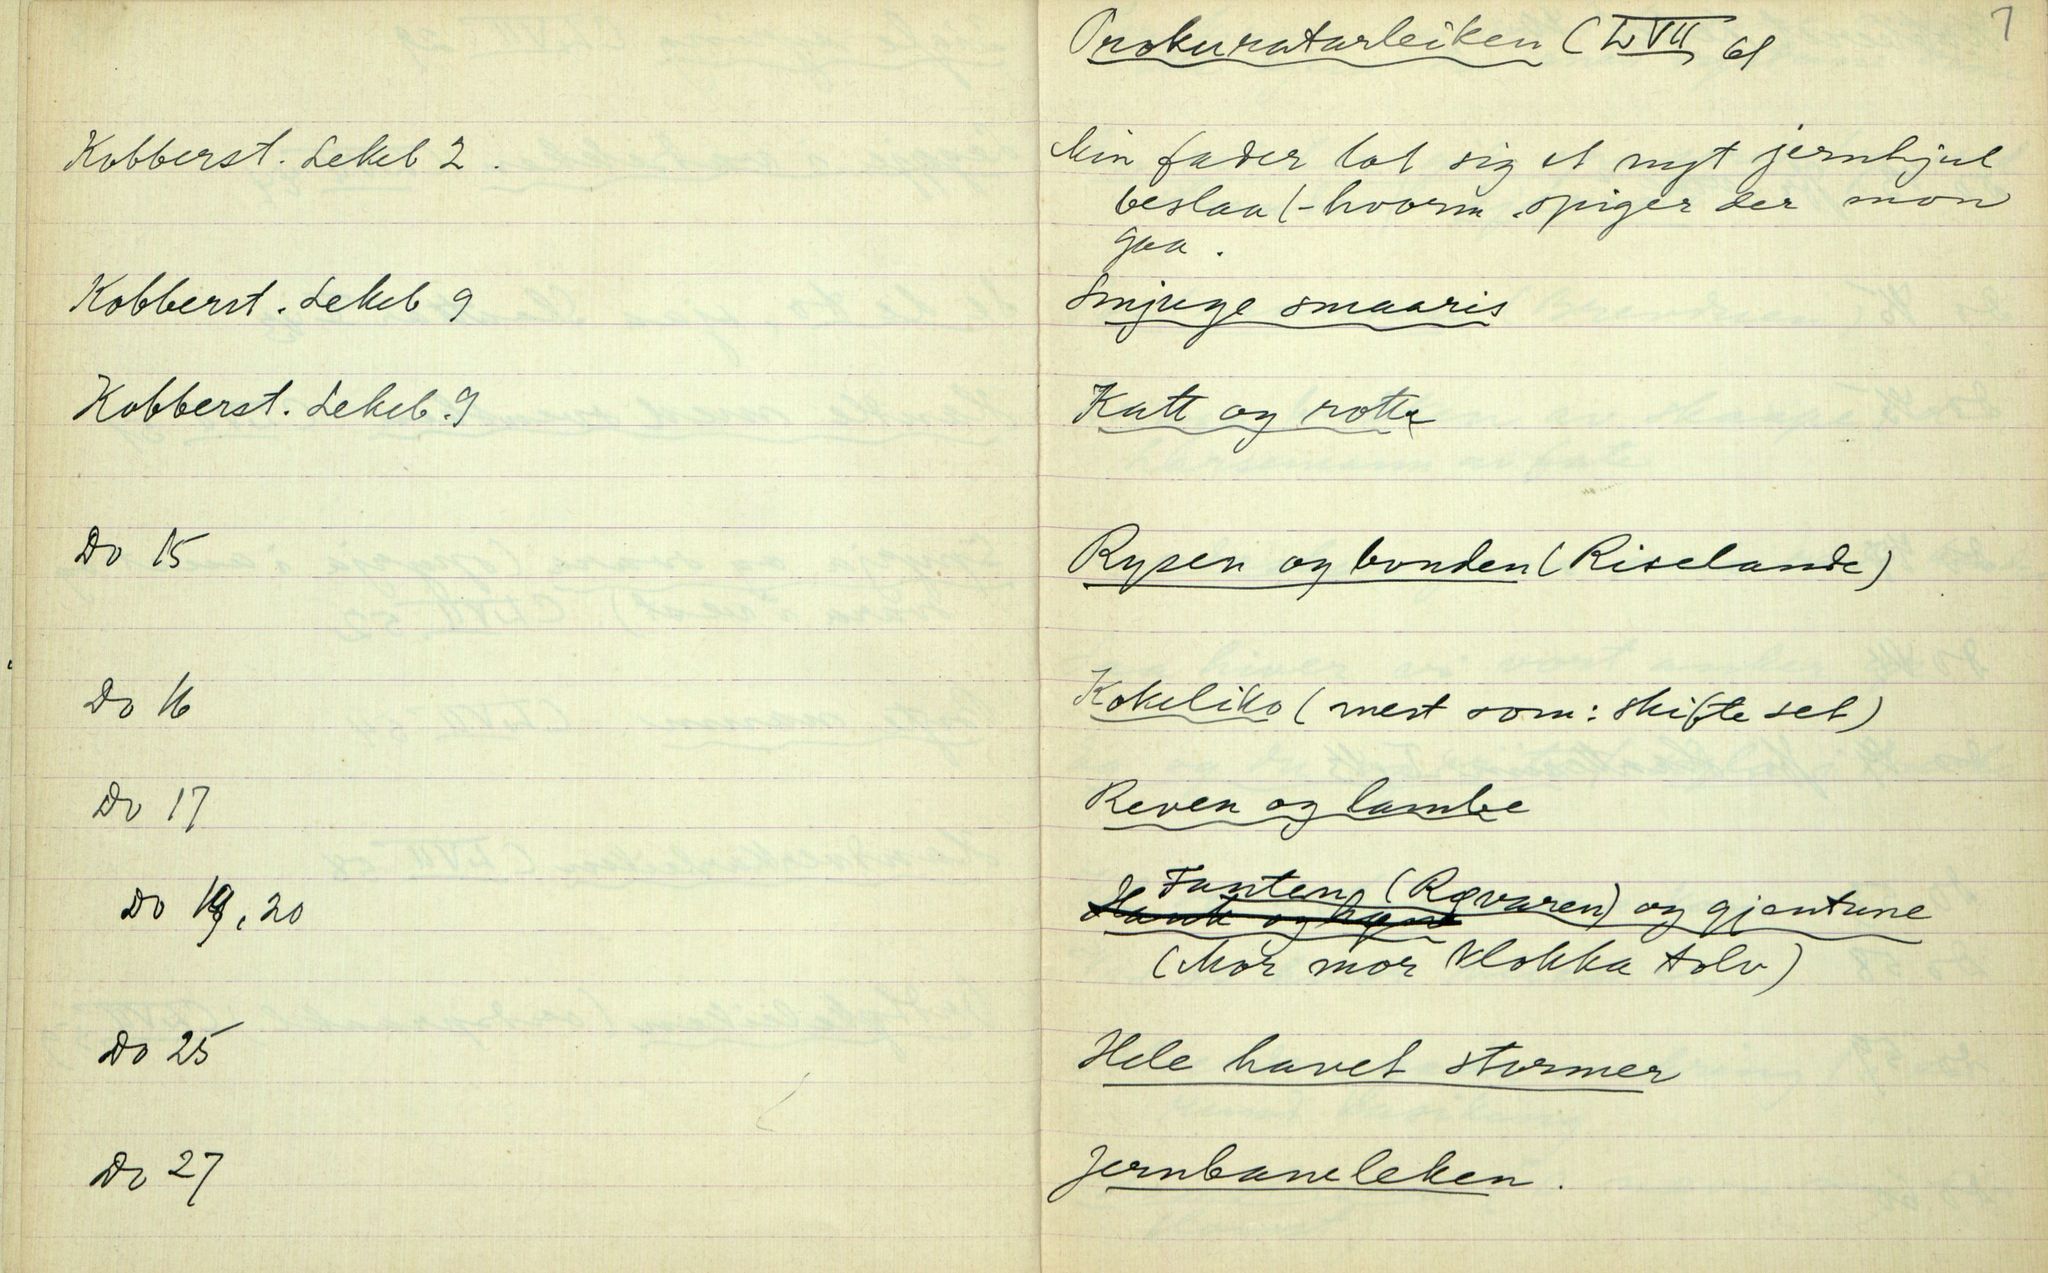 7
Prokuratorleiken (LVII 61
Kobberst. Lekeb 2. Min fader lot sig et nyt jernhjul
beslaa (- hvorm. spiger der mon
gaa.
Kobberst. Lekeb 9 Smjuge smaaris
Kobberst. Lekeb. 9 Katt og rotta
Do 15 Rysen og bonden (Riselande)
Do 16 Kokeliko (mest som: skifte set)
Do 17 Reven og lambe
Do 19, 20 Fanten (Røvaren) og gjentune
(Mor mor klokka tolv)
Do 25 Hele havet stormer
Do 27 Jernbaneleken.